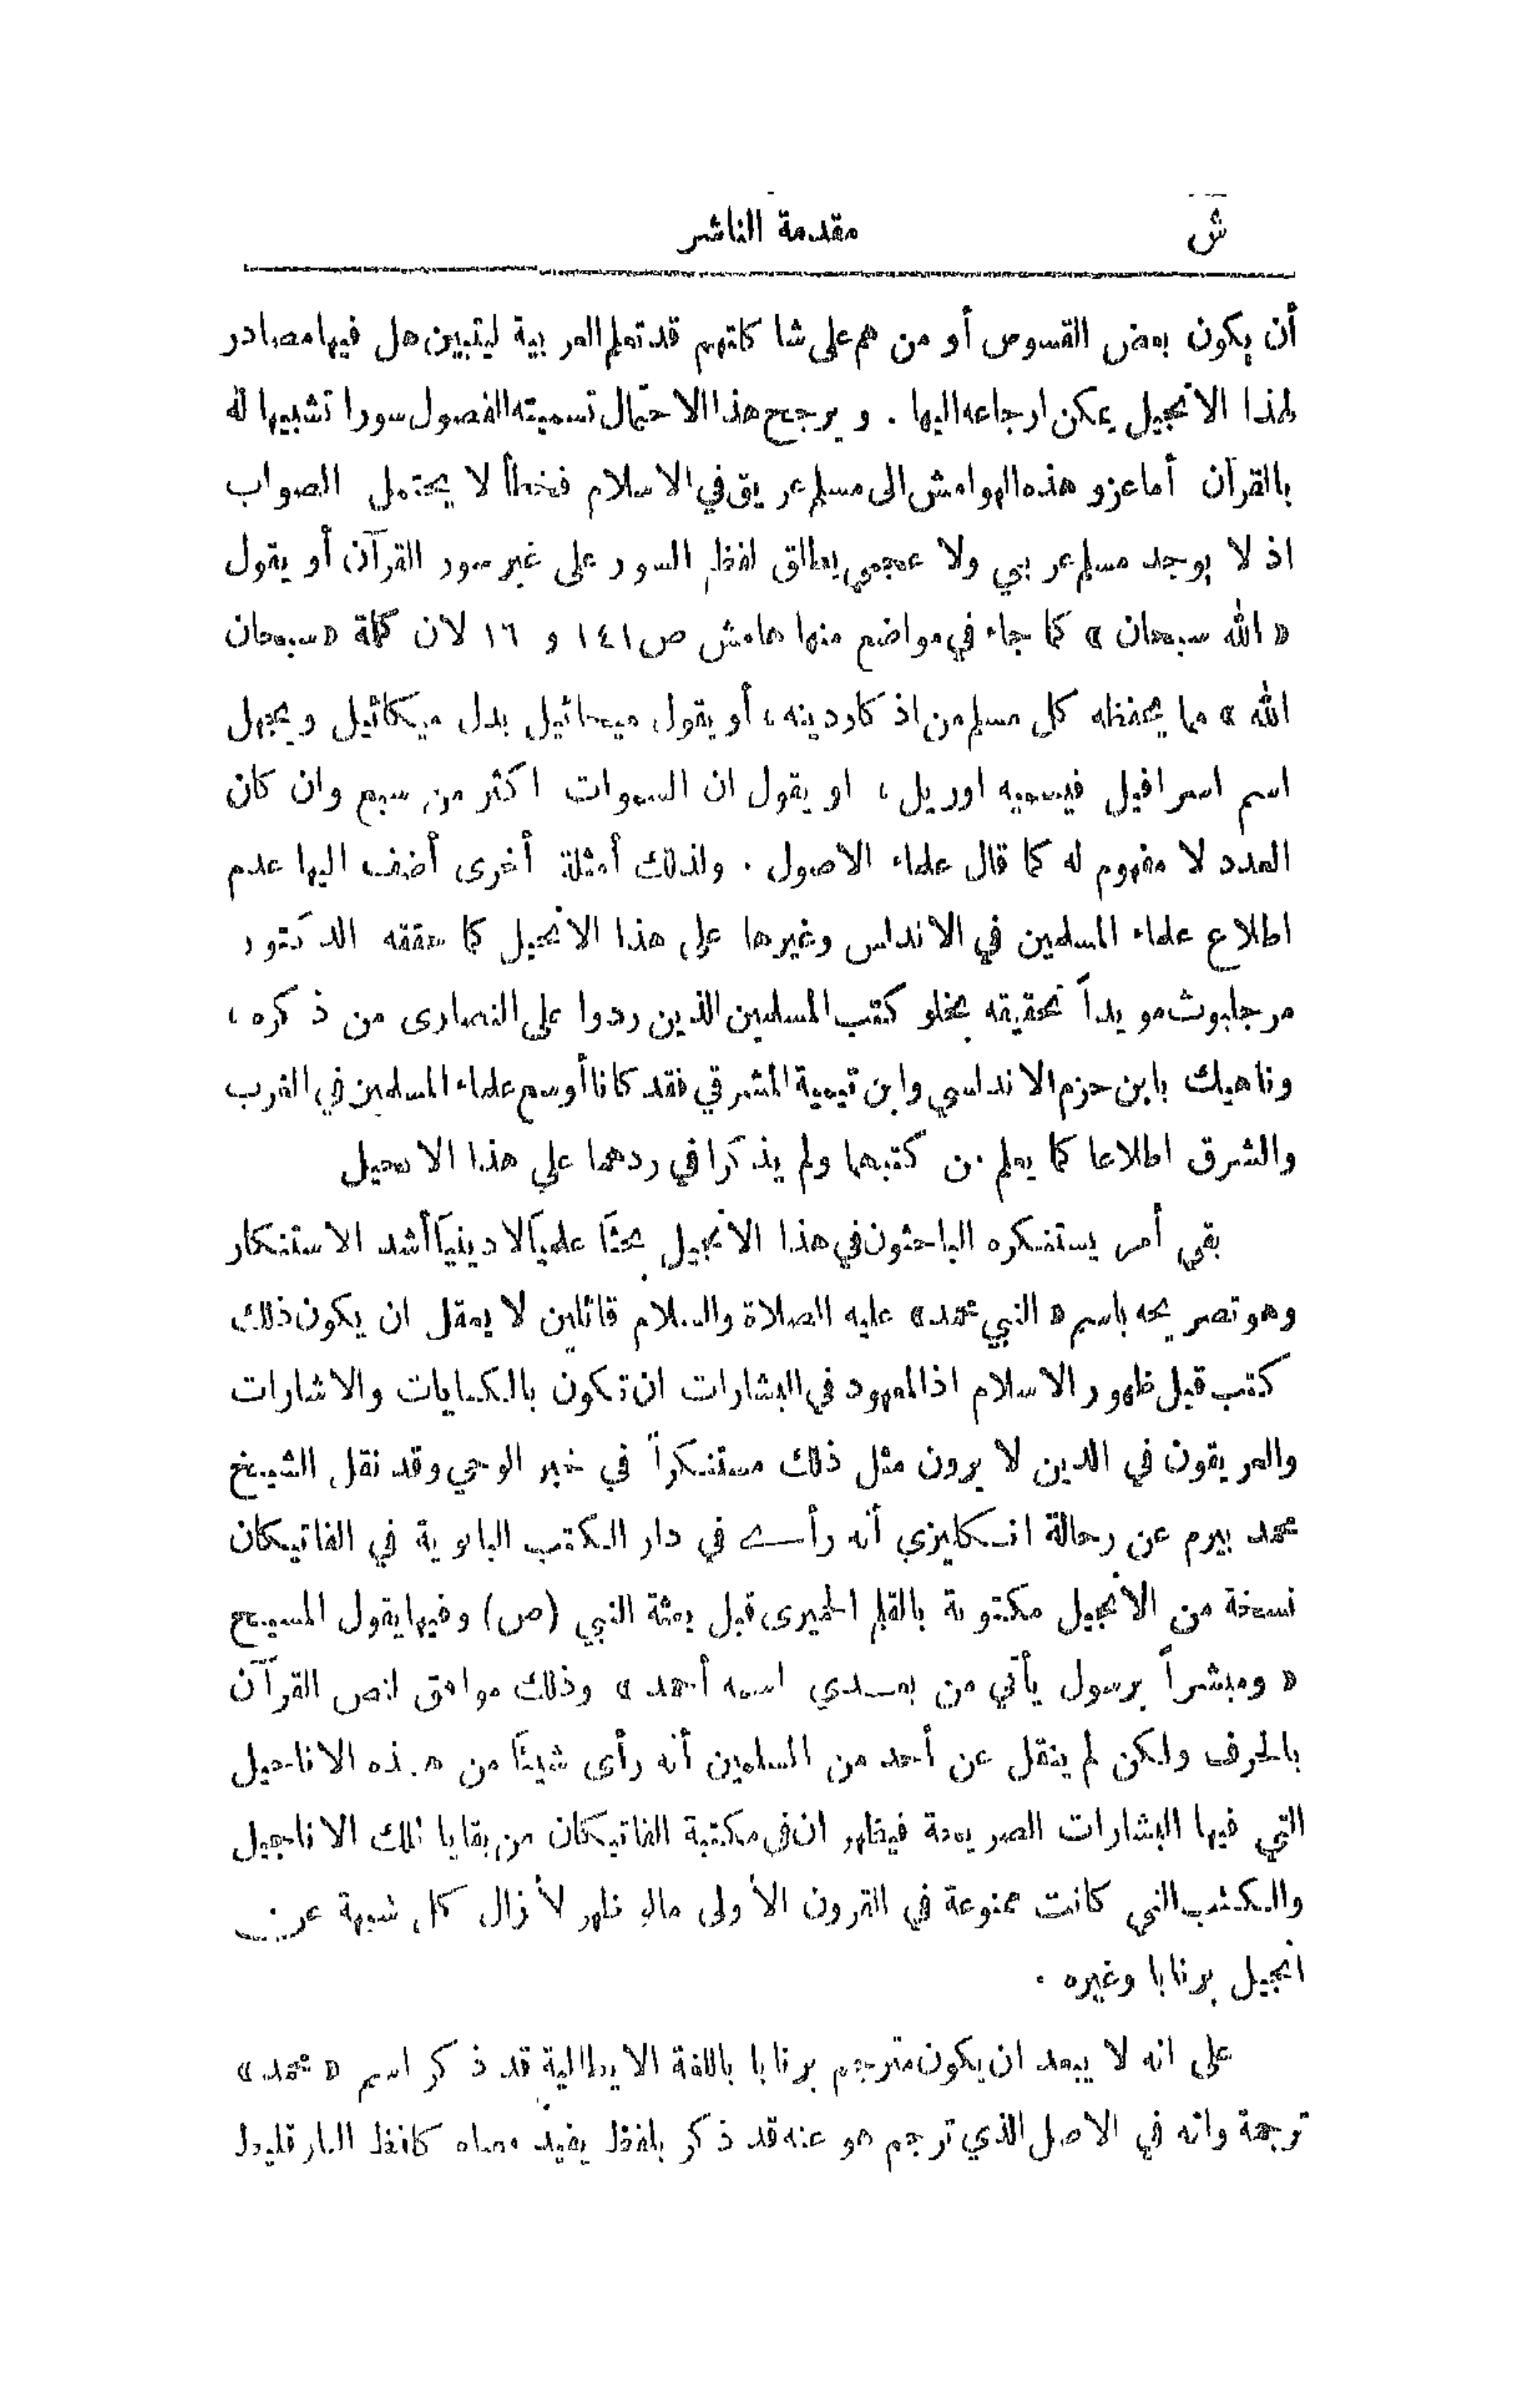 ش
مقدمة الناشر
أن يكون بعض القسوس أو من هم على شاكلتهم قد تعلم العربية ليتبين هل فيها مصادر
لهذا الانجيل يمكن ارجاعه اليها . ويرجح هذا الاحتمال تسميته الفصول سورا تشبيها له
بالقرآن أما عزو هذه الهوامش الى مسلم عريق في الاسلام فخطأ لا يحتمل الصواب
اذ لا يوجد مسلم عربي ولا عجمي يطلق لفظ السور على غير سور القرآن أو يقول
« الله سبحان » كما جاء في مواضع منها هامش ص ١٤١ و ١٦ لان كلمة « سبحان
الله » مما يحفظه كل مسلم من اذكار دينه ، أو يقول ميخائيل بدل ميكائيل ويجهل
اسم اسرافيل فيسميه اوريل ، او يقول ان السموات اكثر من سبع وان كان
العدد لا مفهوم له كما قال علماء الاصول . ولذلك أمثلة أخرى أضف اليها عدم
اطلاع علماء المسلمين في الاندلس وغيرها على هذا الانجيل كما حققه الدكتور
مرجليوث مويداً تحقيقه بخلو كتب المسلمين الذين ردوا على النصارى من ذكره ،
وناهيك بابن حزم الاندلسي وابن تيمية المشرقي فقد كانا أوسع علماء المسلمين في الغرب
والشرق اطلاعا كما يعلم من كتبهما ولم يذكرا في ردهما على هذا الانجيل
بقي أمر يستنكره الباحثون في هذا الانجيل بحثاً علمياً لا دينياً أشد الاستنكار
وهو تصريحه باسم « النبي محمد » عليه الصلاة والسلام قائلين لا يعقل ان يكون ذلك
كتب قبل ظهور الاسلام اذ المعهود في البشارات ان تكون بالكنايات والاشارات
والعريقون في الدين لا يرون مثل ذلك مستنكراً في خبر الوحي وقد نقل الشيخ
محمد بيرم عن رحالة انكليزي أنه رأى في دار الكتب البابوية في الفاتيكان
نسخة من الانجيل مكتوبة بالقلم الحميرى قبل بعثة النبي (ص) وفيها يقول المسيح
« ومبشراً برسول يأتي من بعدي اسمه أحمد » وذلك موافق لنص القرآن
بالحرف ولكن لم ينقل عن أحد من المسلمين أنه رأى شيئاً من هذه الاناجيل
التي فيها البشارات الصريحة فيظهر ان في مكتبة الفاتيكان من بقايا تلك الاناجيل
والكتب التي كانت ممنوعة في القرون الأولى مالو ظهر لأزال كل شبهة عن
انجيل برنابا وغيره .
على انه لا يبعد ان يكون مترجم برنابا باللغة الايطالية قد ذكر اسم « محمد »
ترجمة وانه في الاصل الذي ترجم هو عنه قد ذكر بلفظ يفيد معناه كلفظ البارقليط